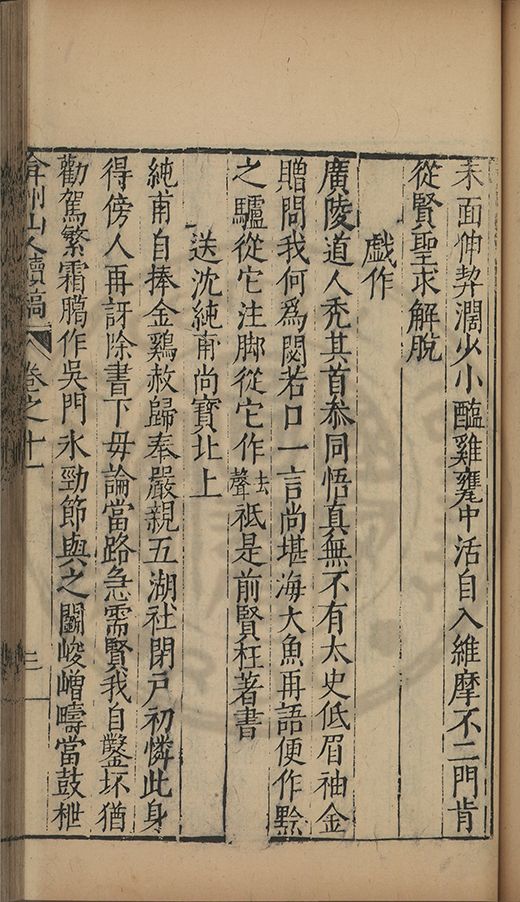 未面伸契濶少小醯雞甕中活自入維摩不二門肯
從賢聖求解脫
戲作
廣陵道人禿其首叅同悟真無不有太史低眉袖金
贈問我何爲閟若口一言尚堪海大魚再語便作黔
之驢從它注脚從它作去聲祗是前賢枉著書
送沈純甫尚寶北上
純甫自捧金鷄赦歸奉嚴親五湖社閉戸初憐此身
得傍人再訝除書下毋論當路急需賢我自鑿坏猶
勸駕繁霜臈作吳門氷勁節與之鬬峻嶒疇當鼓枻
弇州山人續稿 卷之十一 三